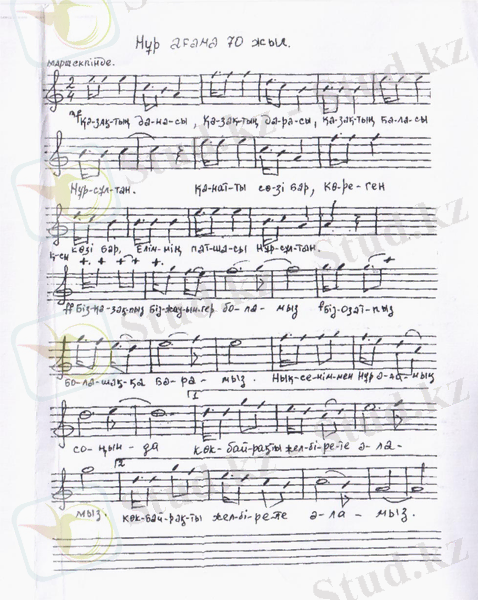 Нұр ағама 70 жыл.
марш екпінде.
mf Қа-зақ-тың да-на-сы, Қа-зақ-тың да-ра-сы, қа-зақ-тың ба-ла-сы
Нұр-сұл-тан. Қа-нат-ты сө-зі бар, кө-ре-ген
көзі бар, Елім-нің пат-ша-сы Нұр-сұл-тан.
Қ-сы
ff Біз-қа-зақ-пыз біз-жау-ын-гер бо-ла-мыз Біз-озат-пыз
бо-ла-шақ-қа ба-ра-мыз. Нық-се-нім-мен Нұр а-ға-ның
1
со-ңын-да көк-бай-рақты жел-бі-ре-те а-ла-
2
мыз. көк-бай-рақ-ты жел-бі-ре-те а-ла-мыз.
Stud.kz